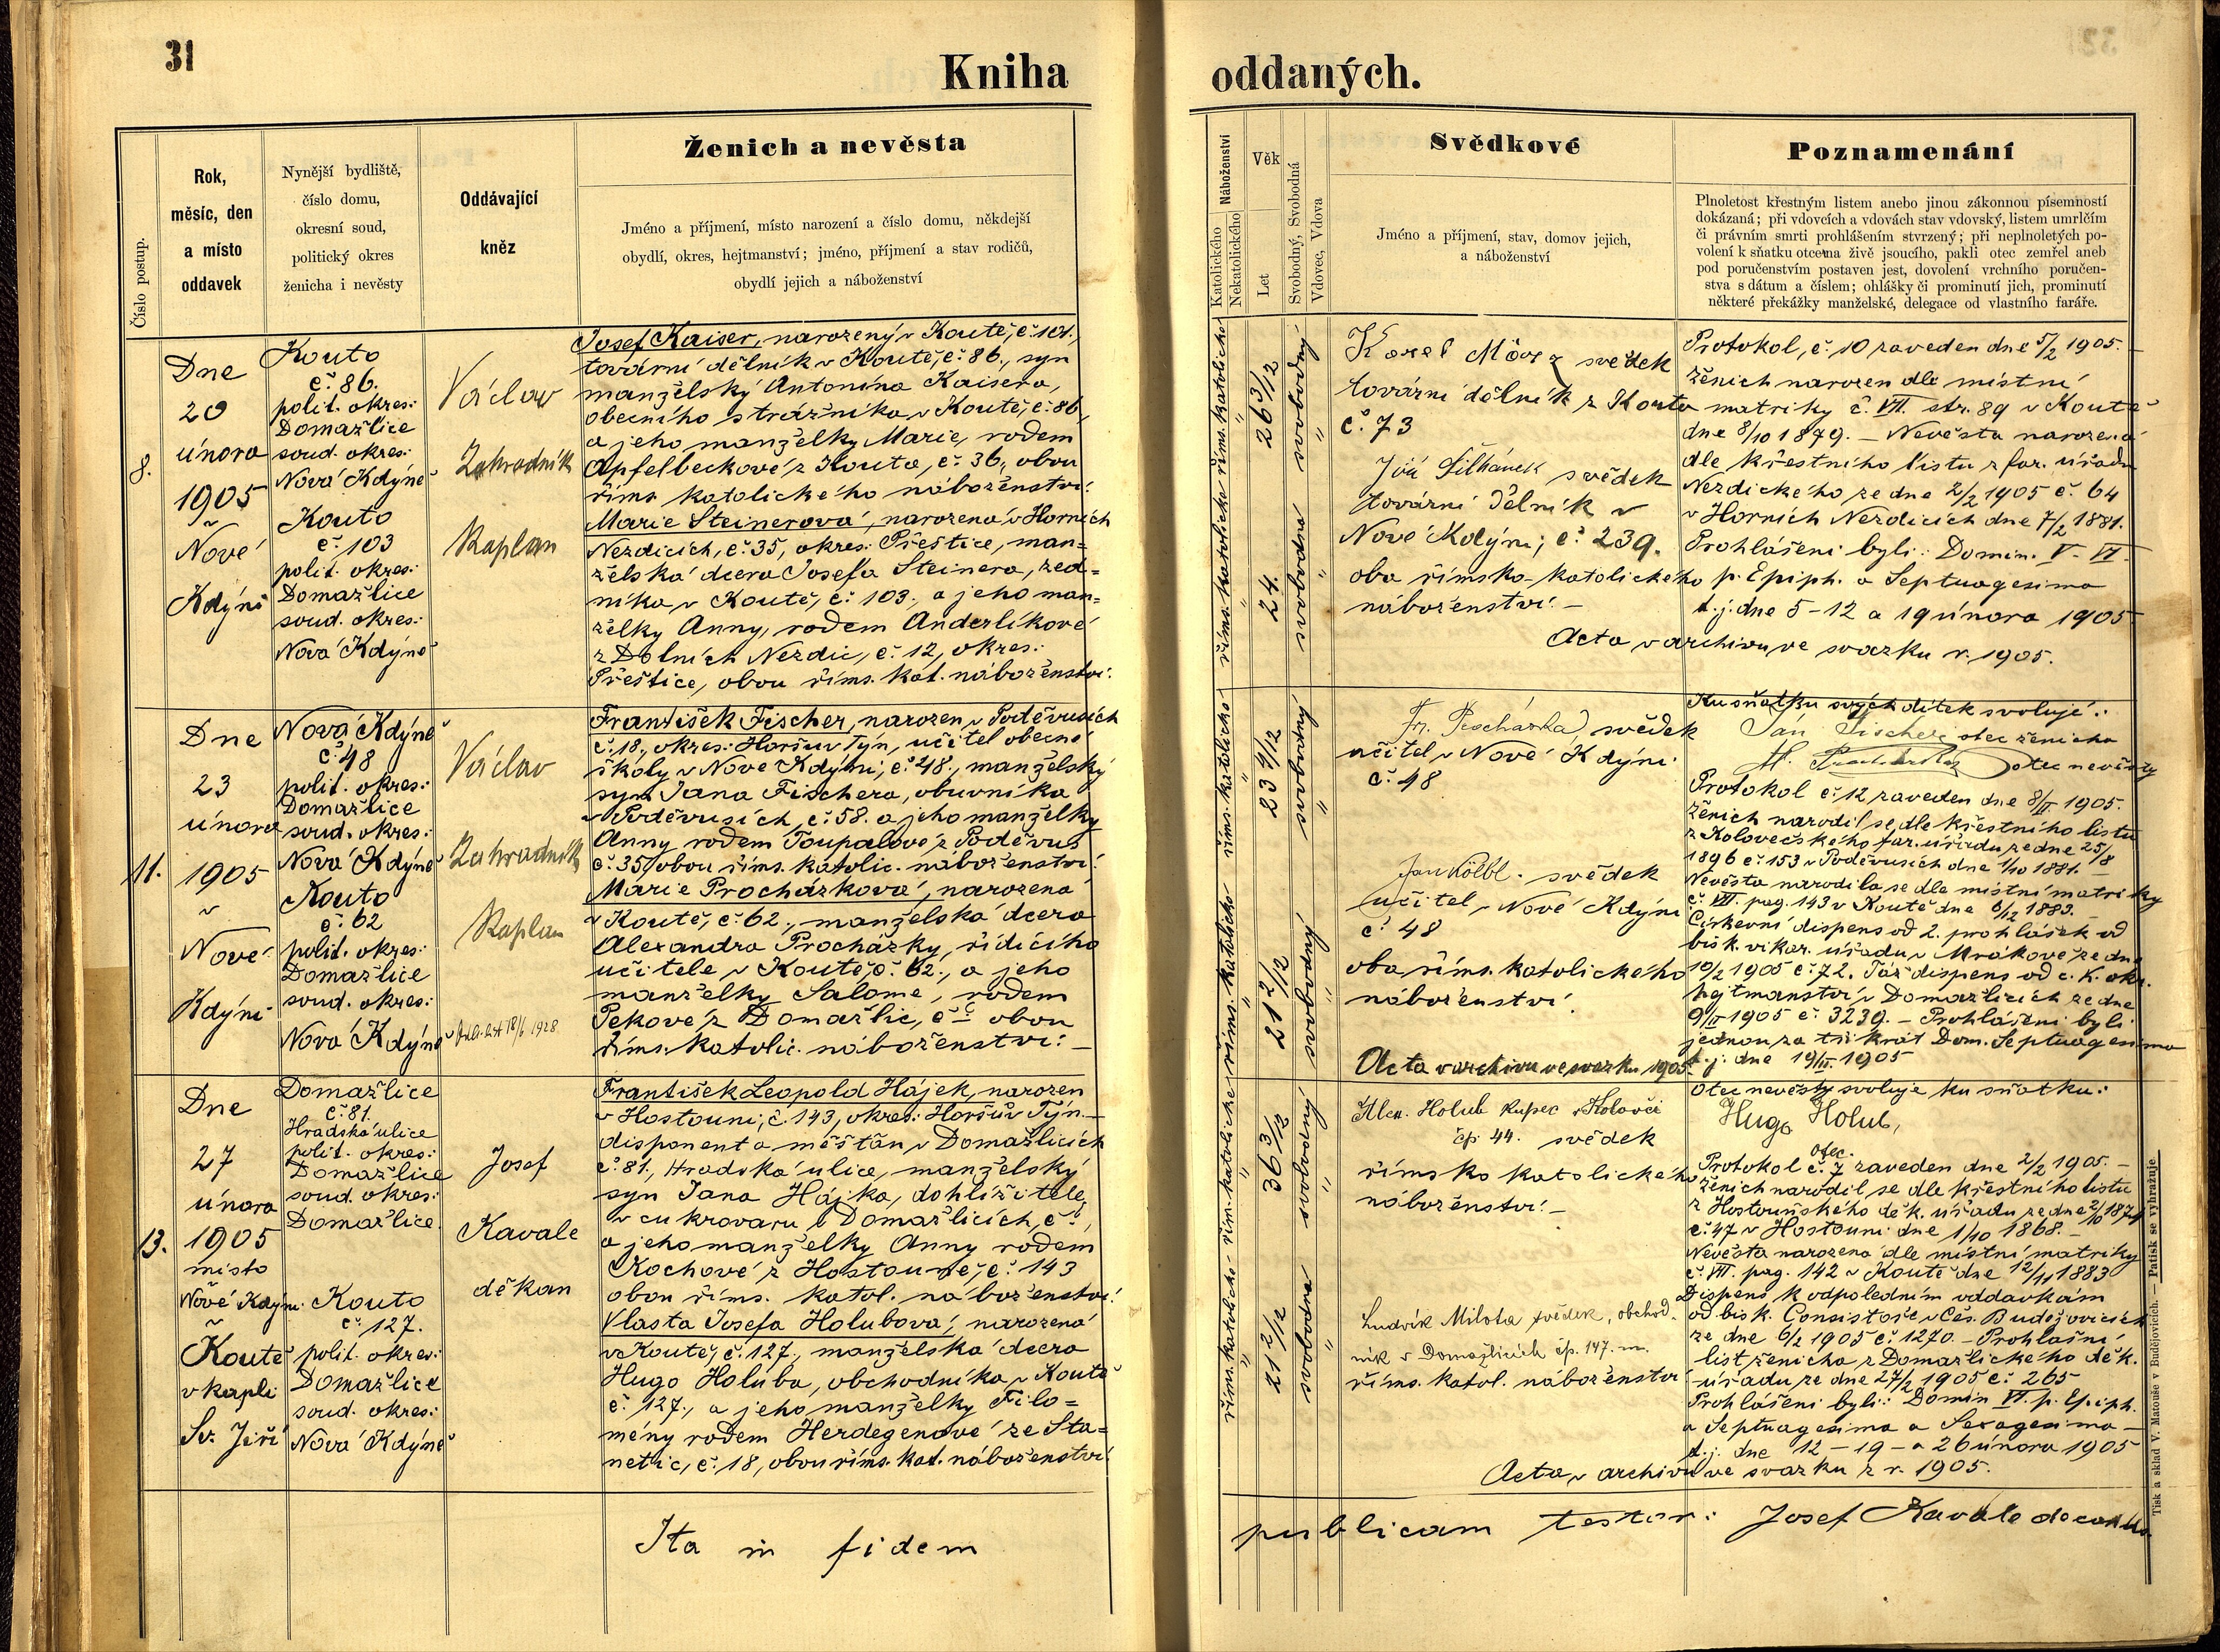 31
Kniha oddaných.
Číslo postup.
Rok,
měsíc, den
a místo
oddavek
Nynější bydliště,
číslo domu,
okresní soud,
politický okres
ženicha i nevěsty
Oddávající
kněz
Ženich a nevěsta
Jméno a příjmení, místo narození a číslo domu, někdejší
obydlí, okres, hejtmanství; jméno, příjmení a stav rodičů,
obydlí jejich a náboženství
Náboženství
Katolického
Nekatolického
Věk
Let
Svobodný, Svobodná
Vdovec, Vdova
Svědkové
Jméno a příjmení, stav, domov jejich,
a náboženství
Poznamenání
Plnoletost křestným listem anebo jinou zákonnou písemností
dokázaná; při vdovcích a vdovách stav vdovský, listem umrlčím
či právním smrti prohlášením stvrzený; při neplnoletých po-
volení k sňatku otcem živě jsoucího, pakli otec zemřel aneb
pod poručenstvím postaven jest, dovolení vrchního poručen-
stva s dátum a číslem; ohlášky či prominutí jich, prominutí
některé překážky manželské, delegace od vlastního faráře.
8.
Dne
20
února
1905
v
Nové
Kdýni
Kouto
č. 86.
polit. okres:
Domažlice
soud. okres:
Nová Kdýně
Kouto
č. 103
polit. okres:
Domažlice
soud. okres:
Nová Kdýně
Václav
Zahradník
Kaplan
Josef Kaiser, narozený v Koutě, č. 101.,
tovární dělník v Koutě, č. 86., syn
manželský Antonína Kaisera,
obecního strážníka v Koutě, č. 86,
a jeho manželky Marie, rodem
Apfelbeckové z Kouta, č. 36, obou
řím. katolického náboženství.
Marie Steinerová, narozená v Horních
Nezdicích, č. 35, okres: Přeštice, man=
želská dcera Josefa Steinera, zed=
níka v Koutě, č. 103. a jeho man=
želky Anny, rodem Anderlíkové
z Dolních Nezdic, č. 12, okres:
Přeštice, obou říms. kat. náboženství.
říms. katolické
26 3/12
svobodný
říms. katolické
24.
svobodna
Karel svědek
tovární dělník z Kouta
č. 73
Jiří svědek
tovární dělník v
Nové Kdýni, č. 239.
oba římsko-katolického
náboženství. –
Protokol, č. 10 zaveden dne 5/2 1905. –
Ženich narozen dle místní
matriky č. VII. str. 89 v Koutě
dne 8/10 1879. – Nevěsta narozena
dle křestního listu z far. úřadu
Nezdického ze dne 2/2 1905 č. 64
v Horních Nezdicích dne 7/2 1881.
Prohlášeni byli: Domin. V. VI.
p. Epiph. a Septuagesima
t. j. dne 5-12 a 19 února 1905
Acta v archivu ve svazku r. 1905.
11.
Dne
23
února
1905
v
Nové
Kdýni
Nová Kdýně
č. 48
polit. okres:
Domažlice
soud. okres:
Nová Kdýně
Kouto
č. 62
polit. okres:
Domažlice
soud. okres:
Nová Kdýně
Václav
Zahradník
Kaplan
František Fischer, narozen v Poděvusích
č. 18., okres: Horšův Týn, učitel obecné
školy v Nové Kdýni, č. 48., manželský
syn Jana Fischera, obuvníka
v Poděvusích, č. 58. a jeho manželky
Anny rodem Toupalové z Poděvus
č. 35, obou říms. katolic. náboženství.
Marie Procházková, narozená
v Koutě, č. 62., manželská dcera
Alexandra Procházky, řídícího
učitele v Koutě, č. 62., a jeho
manželky Salome, rodem
Pekové z Domažlic, č. obou
říms. katolic. náboženství. –
říms. katolické
23 4/12
svobodný
říms. katolické
21 2/12
svobodný
Fr. Procházka, svědek
učitel v Nové Kdýni
č. 48
Jan Kölbl. svědek
učitel v Nové Kdýni
č. 48
oba říms. katolického
náboženství.
Acta v archivu ve svazku 1905.
Ku sňatku svých dítek svolují:
Jan Fischer otec ženicha
otec nevěsty
Protokol č. 12 zaveden dne 8/II 1905.
Ženich narodil se dle křestního listu
z Kolovečského far. úřadu ze dne 25/8
1896 č. 153 v Poděvusích dne 1/10 1881. –
Nevěsta narodila se dle místní matriky
č. VII. pag. 143 v Koutě dne 6/12 1883.
Církevní dispens od 2. prohlášek od
bisk. vikar. úřadu v Mrákově ze dne
10/2 1905 č. 72. Táž dispens od c. k. okr.
hejtmanství v Domažlicích ze dne
9/II 1905 č. 3239. – Prohlášeni byli
jednou za třikrát Dom. Septuagesima
t. j. dne 19/II. 1905
13.
Dne
27
února
1905
místo
Nové Kdýni
v
Koutě
v kapli
Sv. Jiří
Domažlice
č. 81.
Hradská ulice
polit. okres:
Domažlice
soud. okres:
Domažlice.
Kouto
č. 127.
polit. okres:
Domažlice
soud. okres:
Nová Kdýně
Josef
Kavale
děkan
František Leopold Hájek, narozen
v Hostouni, č. 143, okres: Horšův Týn. –
disponent a měšťan v Domažlicích
č. 81., Hradská ulice, manželský
syn Jana Hájka, dohlížitele
v cukrovaru v Domažlicích, č. ,
a jeho manželky Anny rodem
Kochové z Hostouně, č. 143
obou říms. katol. náboženství.
Vlasta Josefa Holubová, narozená
v Koutě, č. 127., manželská dcera
Hugo Holuba, obchodníka v Koutě
č. 127., a jeho manželky Filo=
mény rodem Herdegenové ze Sta=
nětic, č. 18, obou říms. kat. náboženství.
řím. katolické
36 3/12
svobodný
říms. katolické
21 2/12
svobodna
Alex. Holub kupec v Kolovči
čp. 44. svědek
římsko katolického
náboženství. –
Ludvík Milota svědek, obchod.
ník v Domažlicích čp. 147. m.
říms. katol. náboženství
Otec nevěsty svoluje ku sňatku:
Hugo Holub,
otec.
Protokol č. 7 zaveden dne 2/2 1905. –
Ženich narodil se dle křestního listu
z Hostouňského děk. úřadu ze dne 2/10 1874
č. 47 v Hostouni dne 1/10 1868. –
Nevěsta narozena dle místní matriky
č. VII. pag. 142 v Koutě dne 12/11 1883
Dispens k odpoledním oddavkám
od bisk. Consistoře v Čes. Budějovicích
ze dne 6/2 1905 č. 1270. – Prohlašní
list ženicha z Domažlického děk.
úřadu ze dne 27/2 1905 č. 265
Prohlášeni byli: Domin VI. p. Epiph.
a Septuagesima a Sexagesima –
t. j. dne 12 – 19 – a 26 února 1905
Acta v archivu ve svazku z r. 1905.
Ita in fidem publicam testor: Josef Kavale decanus
Tisk a sklad V. Matouše v Budějovicích. — Patisk se vyhražuje